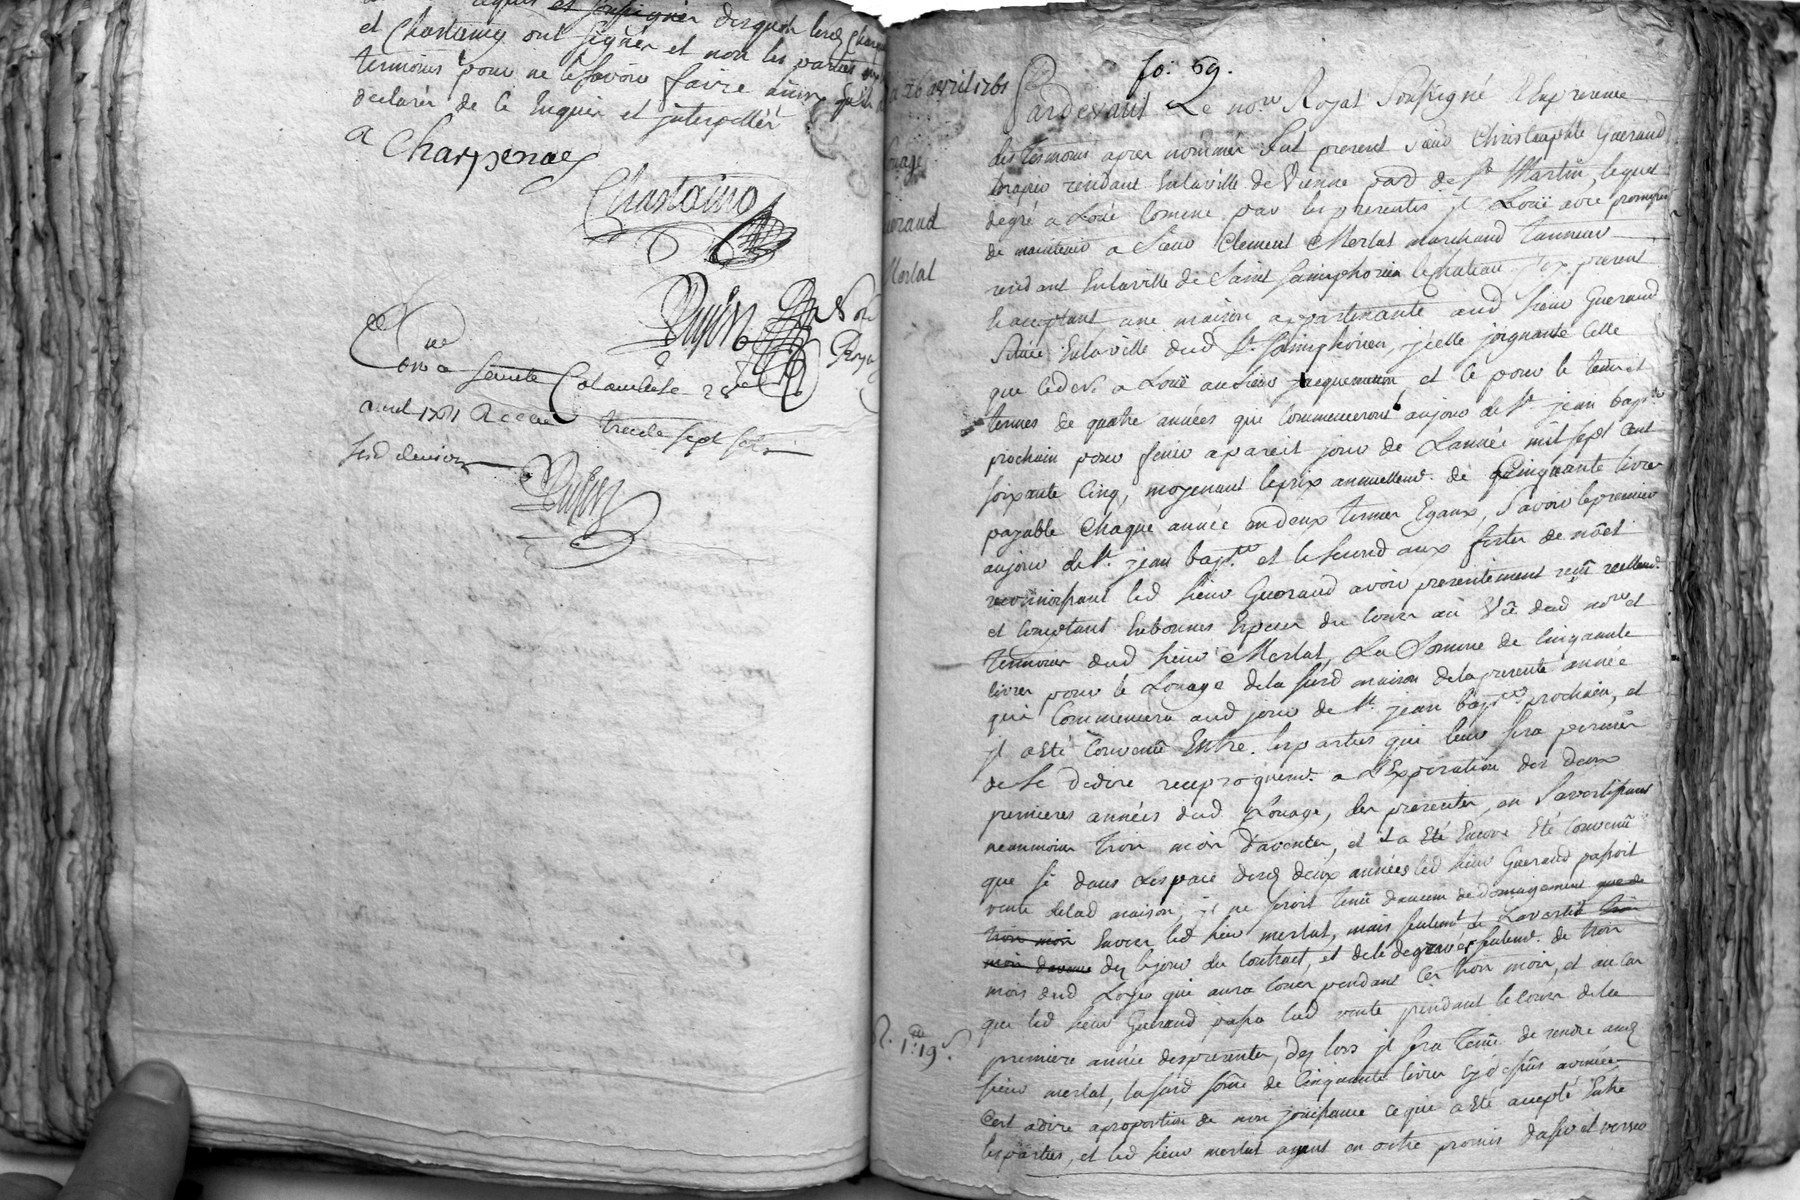 requis et soussigner desquels lesd Charp
et Chastaing ont signér et non les parties
temoins pour ne le scavoir faire ainsi
declarér de ce Enquis et jnterpellér
a Charpenaes
Chastaing
Dujon
Royal
Con le a Sainte Colombe le 28e
avril 1761 Receu treize sept sols
Dujon
26 avril 1761
fo. 69.
Louage
Gueraud
Merlat
R. 1 19 s.
Pardevant Le nore Royal Soussigné Et en presence
des temoins apres nommér fut present sieur Christouphle Gueraud
drapier residant En la ville de Vienne parr de St Martin, lequel
degré a Loüé Comme par les presentes jl Loüe avec promesse
de maintenir a Sieur Clement Merlat marchand tanneur
residant En la ville de Saint Saimphorien le chateau jcy present
Et acceptant une maison appartenante aud sieur Gueraud
Sittüée En la ville dud St Saimphorien, jcelle joignante Celle
que led sr. a Loüé au sieur Jacquemetton, et Ce pour le tems et
termes de quatre années que Commenceront au jour de St jean bapte
prochain pour finir a pareil jour de Lannée mil sept cent
soixante Cinq, moyenant le prix annuellemt. de Cinquante livres
payable Chaque année en deux termes Egaux, Savoir le premier
au jour de St. jean bapte et le second aux festes de nöel
reconnoissant led sieur Gueraud avoir presentement reçû reellemt.
et Comptant En bonnes Especes du Cours au Vû dud nore et
temoins dud sieur Merlat, La Somme de Cinquante
livres pour le Loüage de la susd maison de la presente année
qui Commencera aud jour de St. jean bapte prochain, et
jl a Eté Convenû Entre les parties qui leur sera permis
de se dedire reciproquemt. a L'Expiration des deux
premieres années dud Loüage, des presentes, en Savertissant
neanmoins trois mois d'avance, et jl a Eté Encore Eté Convenû
que si dans Lespace desd deux années led sieur Gueraud passoit
vente de lad maison, jl ne seroit tenû d'aucun dedomagement que de
trois mois Envers led sieur merlat, mais seulemt. de Lavertir trois
mois d'avance dez le jour du Contract, et de le degrever seulemt. de trois
mois dud Loyer qui aura Cours pendant Ces trois mois, et au Cas
que led sieur Gueraud passa lad vente pendant le Cours de la
premiere année des presentes, dez lors jl sera tenû de rendre aud
sieur merlat, la susd some de Cinquante livres Cy dessus avancée,
Cest a dire a proportion de non joüissance ce qui a Eté accepté Entre
les parties, et led sieur merlat ayant en outre promis